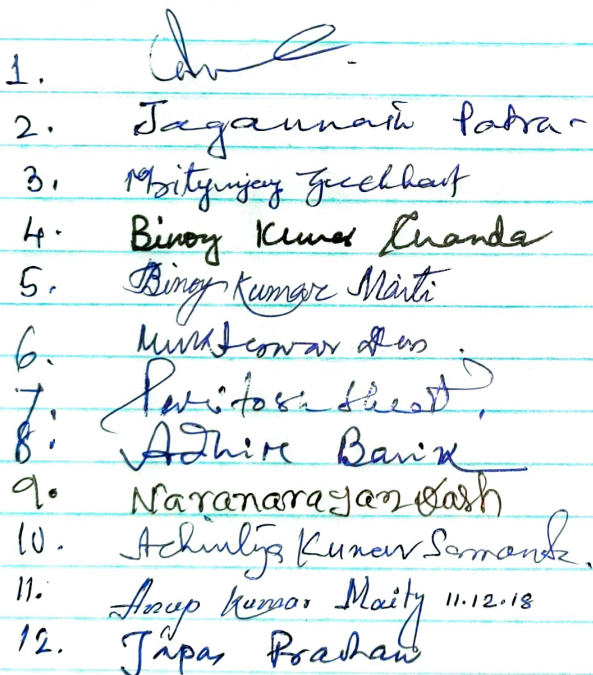 1.
2. Jagannath Patra
3. Mrityunjay
4. Binoy Kumar Khanda
5. Binoy Kumar Maiti
6. Mukteswar Das.
7. Paritosh
8. Adhir Barik
9. Naranarayan Dash
10. Achintya Kumar Samanta.
11. Anup Kumar Maity 11.12.18
12. Tapas Pradhan